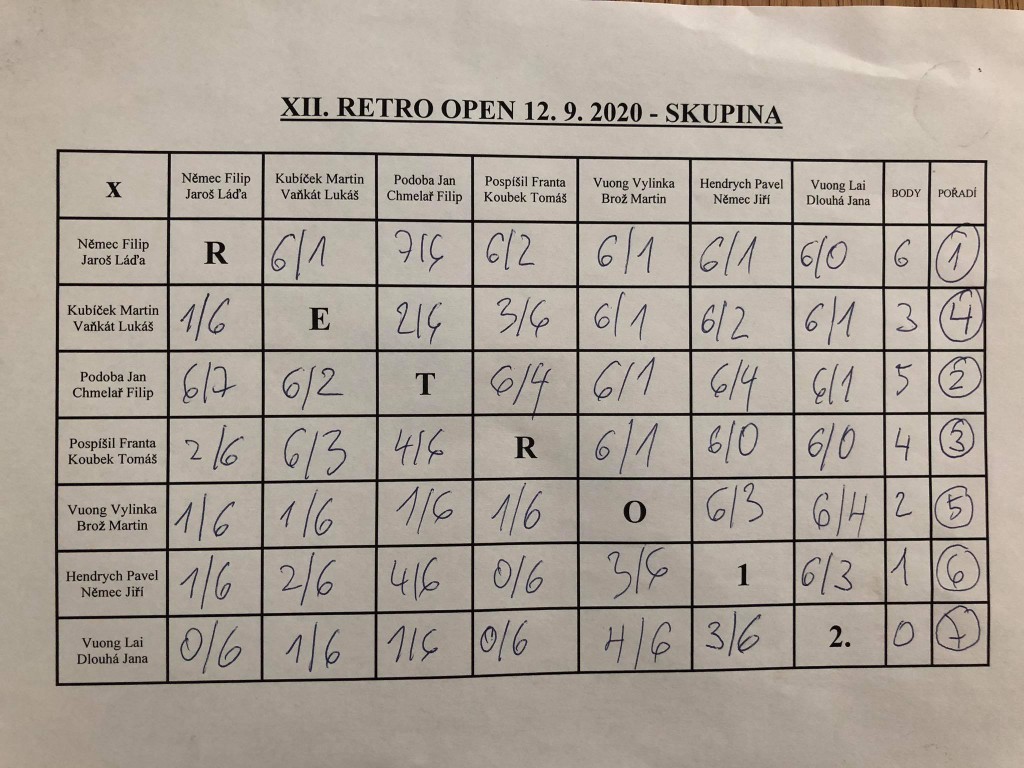 XII. RETRO OPEN 12. 9. 2020 - SKUPINA
X Němec Filip Jaroš Láďa Kubíček Martin Vaňkát Lukáš Podoba Jan Chmelař Filip Pospíšil Franta Koubek Tomáš Vuong Vylinka Brož Martin Hendrych Pavel Němec Jiří Vuong Lai Dlouhá Jana BODY POŘADÍ
Němec Filip Jaroš Láďa R 6/1 7/6 6/2 6/1 6/1 6/0 6 1
Kubíček Martin Vaňkát Lukáš 1/6 E 2/6 3/6 6/1 6/2 6/1 3 4
Podoba Jan Chmelař Filip 6/7 6/2 T 6/4 6/1 6/4 6/1 5 2
Pospíšil Franta Koubek Tomáš 2/6 6/3 4/6 R 6/1 6/0 6/0 4 3
Vuong Vylinka Brož Martin 1/6 1/6 1/6 1/6 O 6/3 6/4 2 5
Hendrych Pavel Němec Jiří 1/6 2/6 4/6 0/6 3/6 1 6/3 1 6
Vuong Lai Dlouhá Jana 0/6 1/6 1/6 0/6 4/6 3/6 2. 0 7